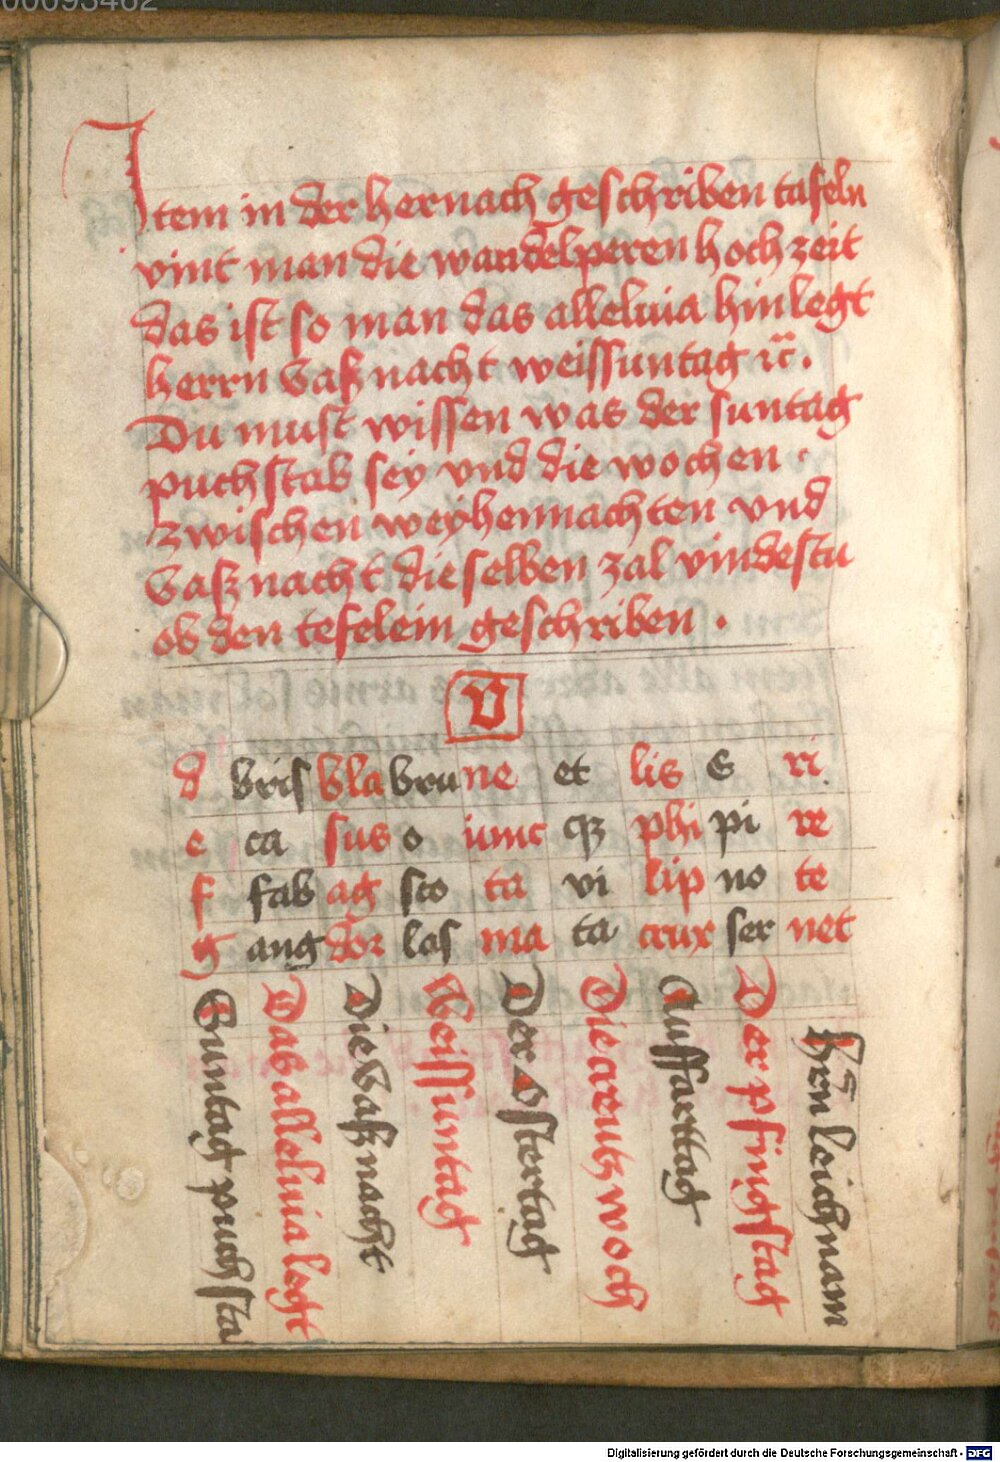 00093462
Item in der hernach geschriben tafeln
vint man die wandelperen hochzeit
das ist so man das alleluia hinlegt
herrn vaßnacht weissuntag ꝛc̄.
Du must wissen was der suntag
puchstab sey vnd die wochen ·
zwischen weyhennachten vnd
vaßnacht die selben zal vindestu
ob den tefelein geschriben ·
V
d bris bla bru ne et lis E ri
e ca sus o iunc qꝫ phi pi re
f fab ag sco ta vi lip no te
g ang dor las ma ta crux ser net
Suntag puchsta
Das alleluia legt
Die vaßnacht
Weissuntag
Der Ostertag
Die creutzwoch
Auffarttag
Der pfingstag
hr̄n leichnam
Digitalisierung gefördert durch die Deutsche Forschungsgemeinschaft - DFG